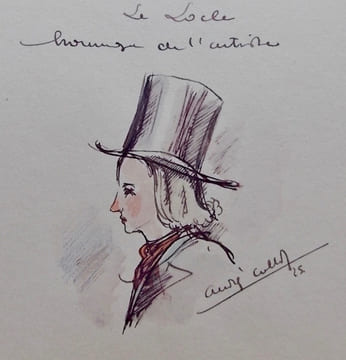 Le Locle
hommage de l'artiste
André
25